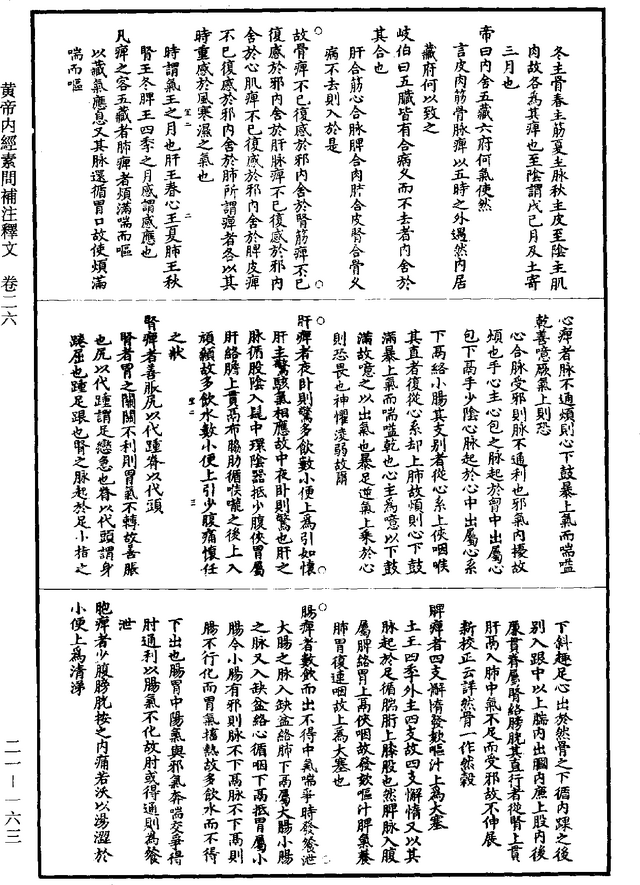 冬主骨春主筋夏主脉秋主皮至陰主肌
肉故各為其痺也至陰謂戊己月及土寄
三月也
帝曰内舍五藏六府何氣使然
言皮肉筋骨脉痺以五時之外遇然内居
藏府何以致之
岐伯曰五臟皆有合病久而不去者内舍於
其合也
肝合筋心合脉脾合肉肺合皮腎合骨久
病不去則入於是
故骨痺不已復感於邪内舍於腎筋痺不已
復感於邪内舍於肝脉痺不已復感於邪内
舍於心肌痺不已復感於邪内舍於脾皮痺
不已復感於邪内舍於肺所謂痺者各以其
時重感於風寒濕之氣也
時謂氣王之月也肝王春心王夏肺王秋
腎王冬脾王四季之月感謂感應也
凡痺之容五藏者肺痺者煩滿喘而嘔
以藏氣應息又其脉還循胃口故使煩滿
喘而嘔
心痺者脉不通煩則心下鼓暴上氣而喘嗌
乾善噫厥氣上則恐
心合脉受邪則脉不通利也邪氣内擾故
煩也手心主心包之脉起於胷中出屬心
包下鬲手少陰心脉起於心中出屬心系
下鬲絡小腸其支别者從心系上俠咽喉
其直者復從心系却上肺故煩則心下鼓
滿暴上氣而喘嗌乾也心主為噫以下鼓
滿故噫之以出氣也暴足逆氣上乘於心
則恐畏也神懼淩弱故爾
肝痺者夜卧則驚多飲數小便上為引如懷
肝主驚駭氣相應故中夜卧則驚也肝之
脉循股陰入髦中環陰器抵少腹俠胃屬
肝絡膽上貫鬲布脇肋循喉嚨之後上入
頏顙故多飲水數小便上引少腹痛懷任
之狀
腎痺者善脹尻以代踵脊以代頭
腎者胃之關關不利則胃氣不轉故善脹
也尻以代踵謂足攣急也脊以代頭謂身
踡屈也踵足跟也腎之脉起於足小指之
下斜趣足心出於然骨之下循内踝之後
别入跟中以上腨内出膕内廉上股内後
廉貫脊屬腎絡膀胱其直行者從腎上貫
肝鬲入肺中氣不足而受邪故不伸展
新校正云詳然骨一作然穀
脾痺者四支懈惰發欬嘔汁上為大塞
土王四季外主四支故四支懈惰又以其
脉起於足循腨胻上膝股也然脾脉入腹
屬脾絡胃上鬲俠咽故發欬嘔汁脾氣養
肺胃復連咽故上為大塞也
腸痺者數飲而出不得中氣喘爭時發飱泄
大腸之脉入缺盆絡肺下鬲屬大腸小腸
之脉又入缺盆絡心循咽下鬲抵胃屬小
腸今小腸有邪則脉不下鬲脉不下鬲則
腸不行化而胃氣㨪熱故多飲水而不得
下出也腸胃中陽氣與邪氣奔喘交爭得
肘通利以腸氣不化故肘或得通則為飱
泄
胞痺者少腹膀胱按之内痛若沃以湯澀於
小便上為清涕
黃帝内經素問補注釋文　卷二六
二一－一六三